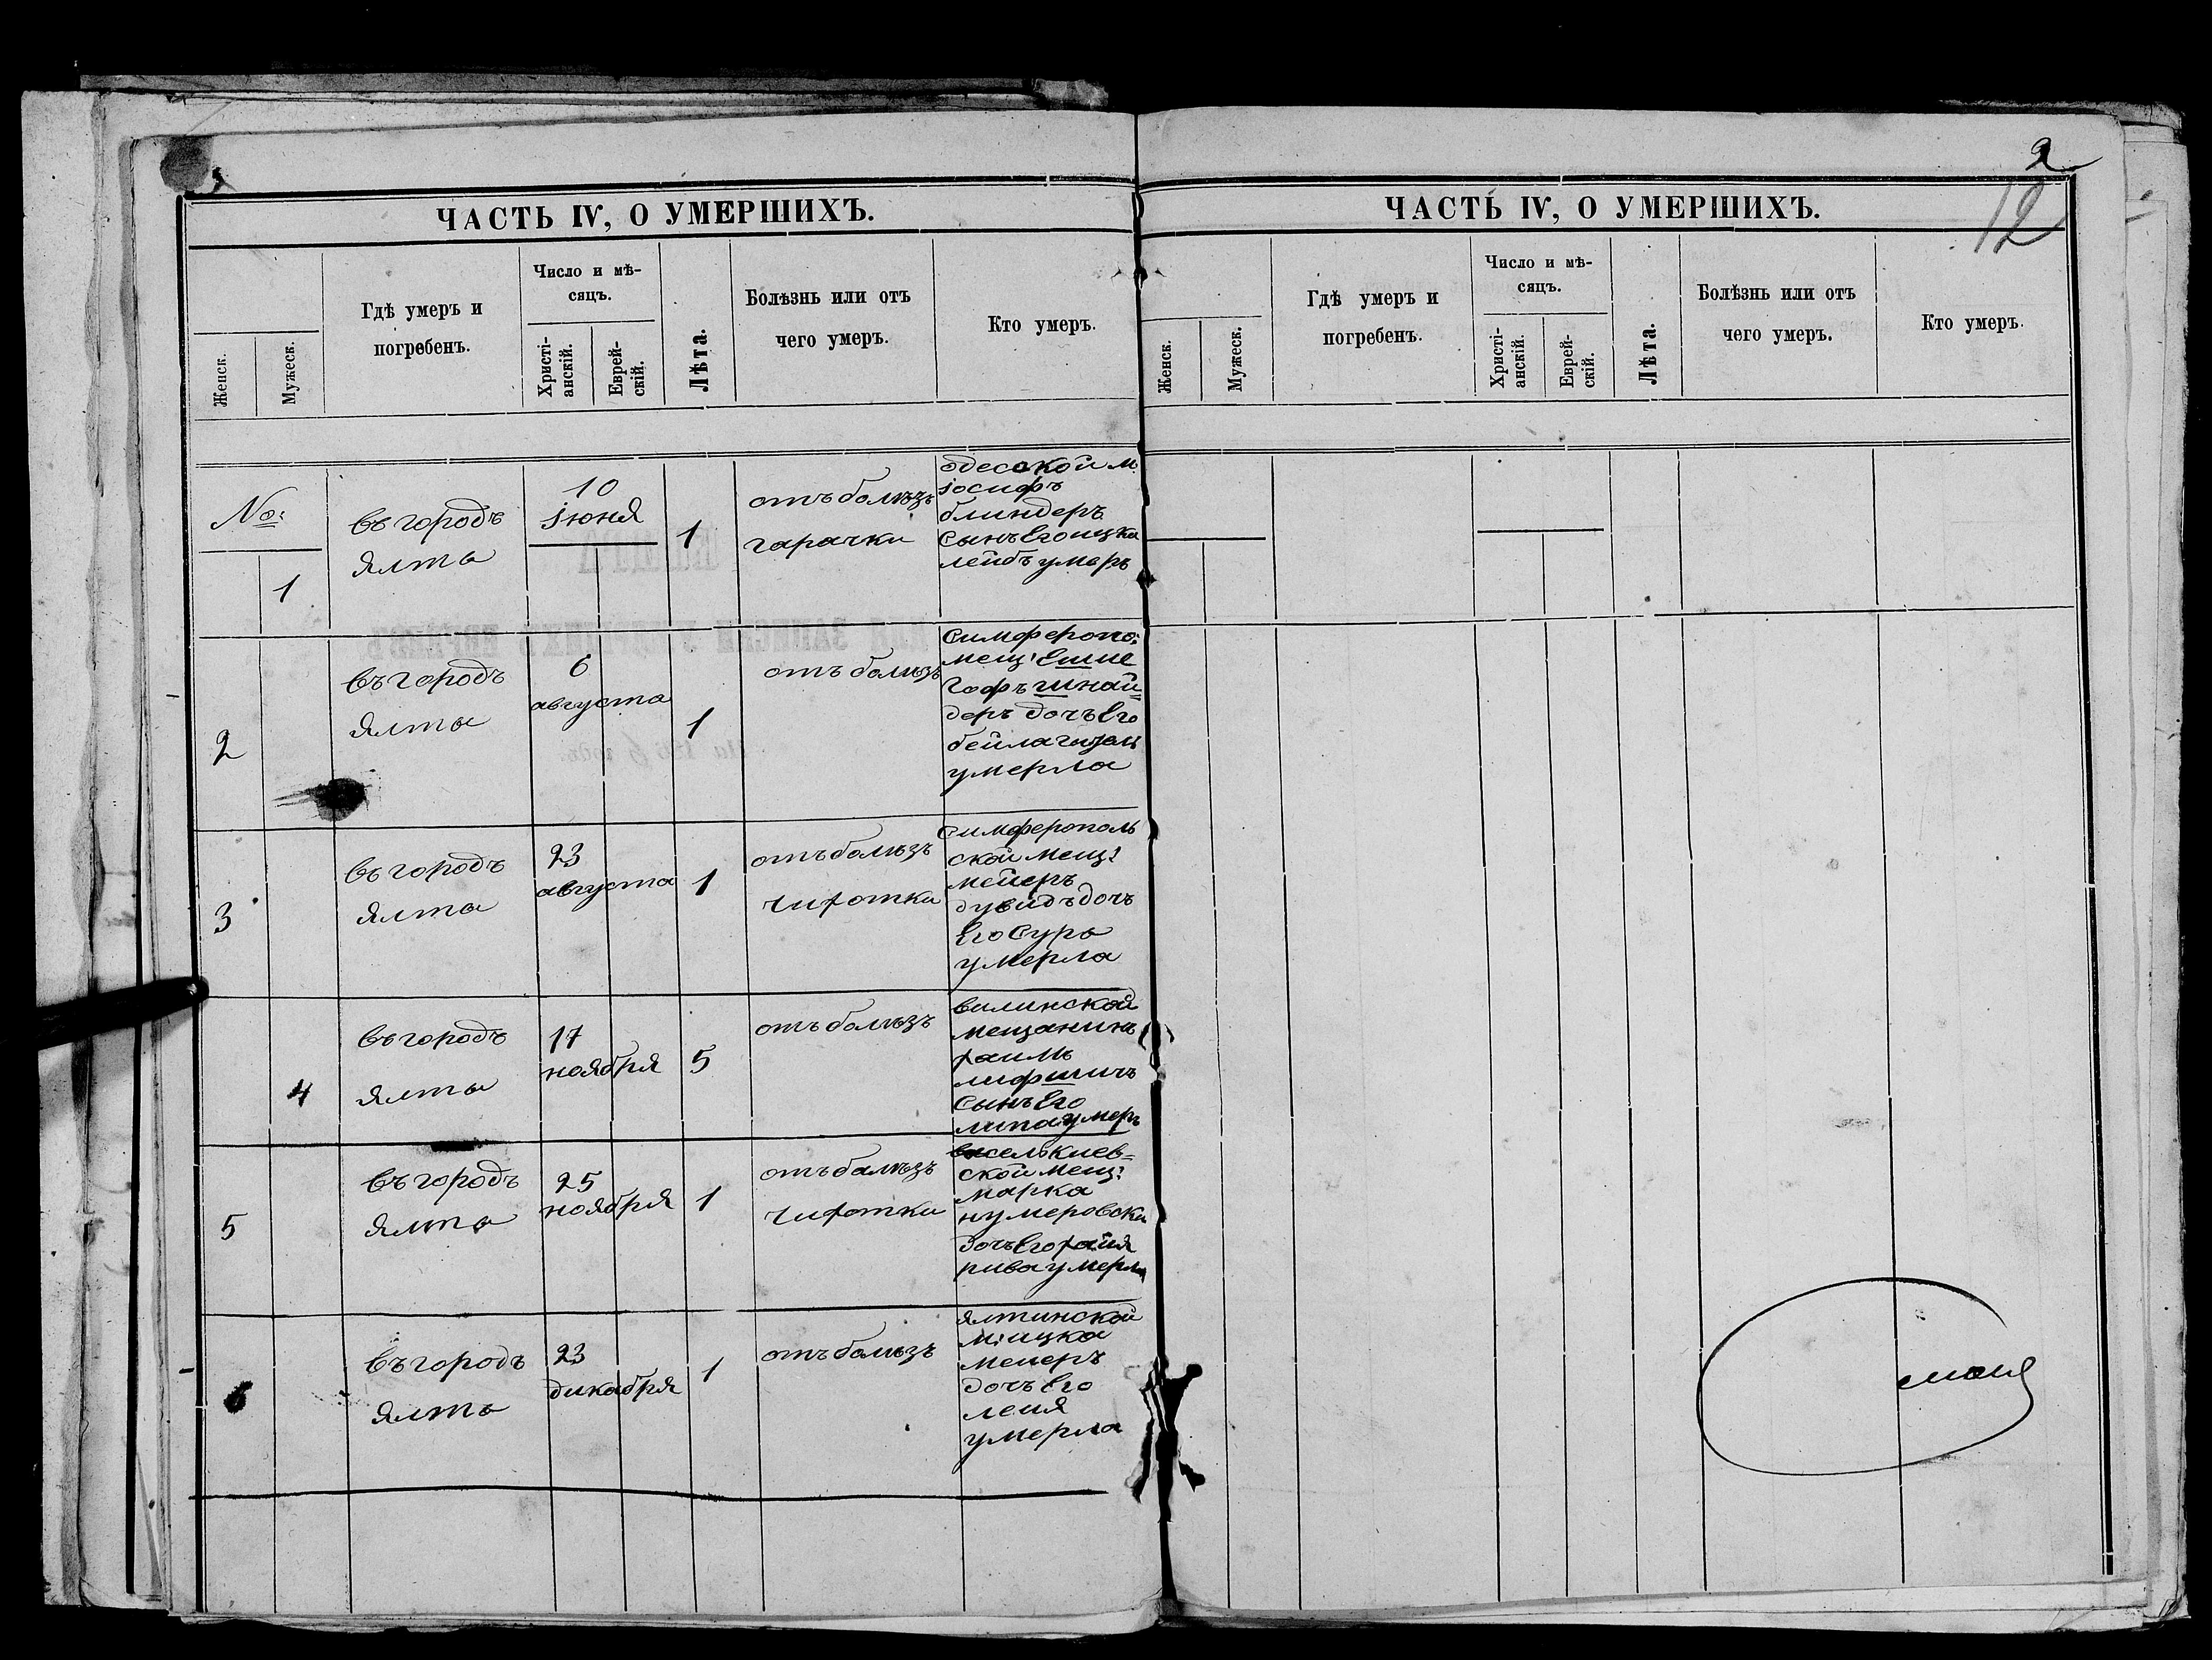 2
12
ЧАСТЬ IV, О УМЕРШИХЪ.
Женск.
Мужеск.
Гдѣ умеръ и
погребенъ.
Число и мѣ-
сяцъ.
Христі-
анскій.
Еврей-
скій.
Лѣта.
Болѣзнь или отъ
чего умеръ.
Кто умеръ.
№:
1
въ городъ
ялта
10
іюня
1
отъ болѣзъ
гарачки
одесской м
іосифъ
блиндеръ
сынъ Его ицка
лейбъ умеръ
2
въ городъ
ялта
6
августа
1
отъ болѣзъ
симферопо:
мещ:
Гофъ шнай=
деръ дочъ Его
бейла
умерла
3
въ городъ
ялта
23
августа
1
отъ болѣзъ
чихотки
симферополь
ской мещ:
мейеръ
дувидъ дочъ
Его Сура
умерла
4
въ городъ
ялта
17
ноября
5
отъ болѣзъ
вилинской
мещанинъ
хаимъ
лифшичъ
сынъ Его
липа умеръ
5
въ городъ
ялта
25
ноября
1
отъ болѣзъ
чихотки
киев=
ской мещ:
марка
нумеровски
дочъ Его хаія
рива умерла
6
въ городъ
ялтъ
23
дикабря
1
отъ болѣзъ
ялтинской
м: ицка
меиеръ
дочъ Его
леия
умерла
ЧАСТЬ IV, О УМЕРШИХЪ.
Женск.
Мужеск.
Гдѣ умеръ и
погребенъ.
Число и мѣ-
сяцъ.
Христі-
анскій.
Еврей-
скій.
Лѣта.
Болѣзнь или отъ
чего умеръ.
Кто умеръ.